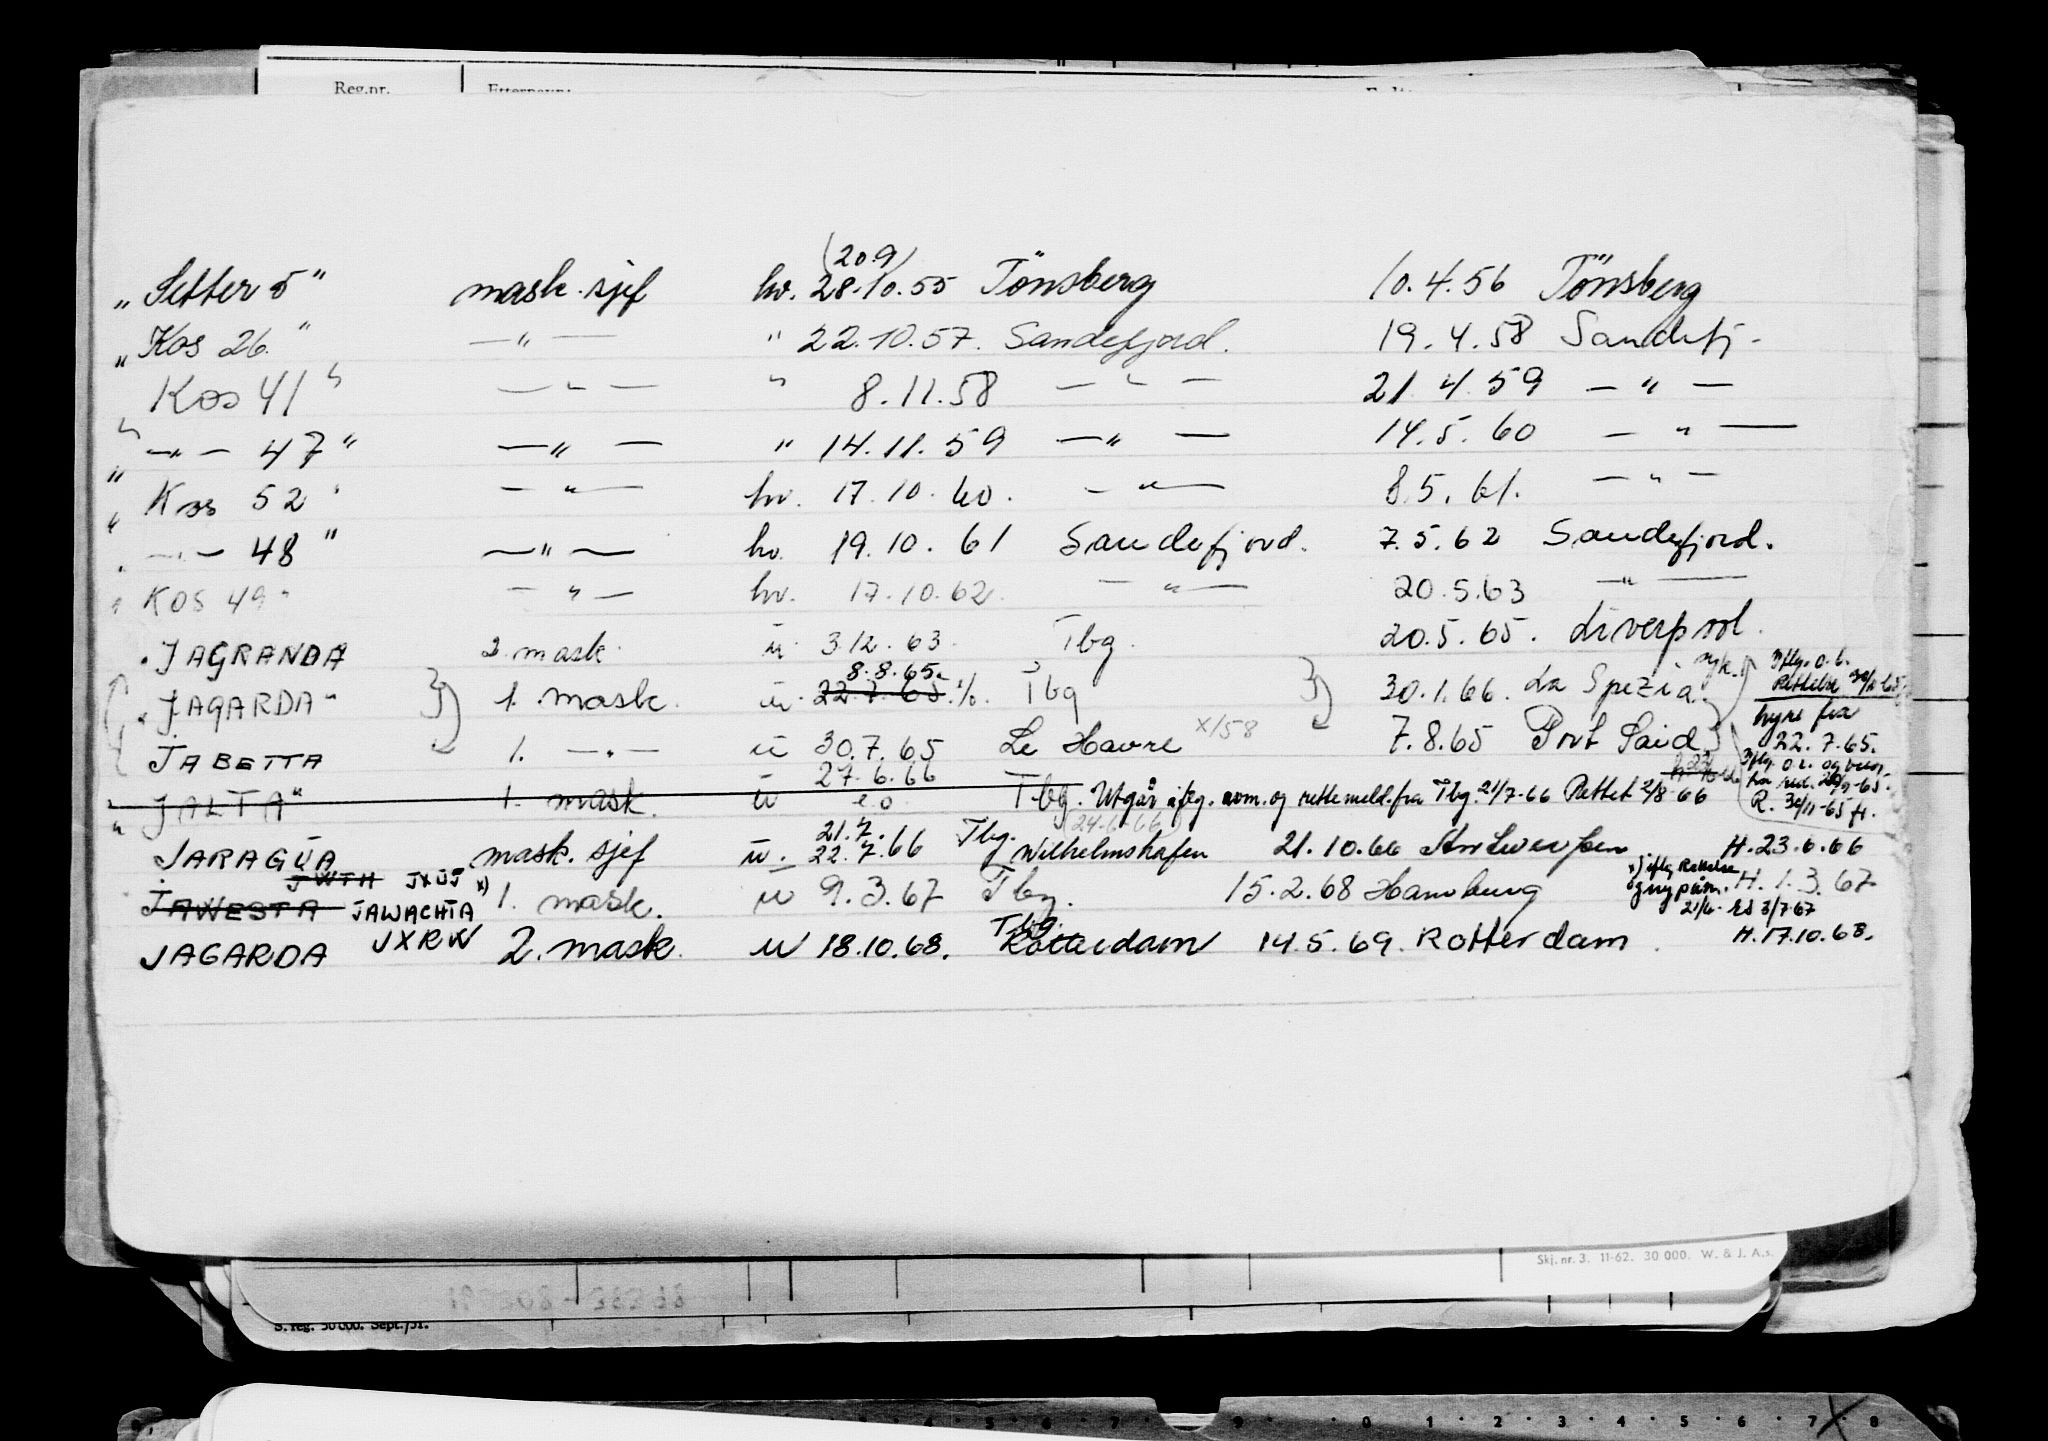 Reg.nr. Etternavn:
(20.9)
„ Setter 5 " mask. sjef hv. 28.10.55 Tönsberg 10.4.56 Tönsberg
„ Kos 26 " — " — " 22.10.57. Sandefjord. 19.4.58 Sandefj.
Kos 41 " — " — " 8.11.58 — " — 21.4.59 — " —
" — " — 47 " — " — " 14.11.59 — " — 14.5.60 — " —
" Kos 52 " — " — hv. 17.10.60. — " — 8.5.61. — " —
" — " — 48 " — " — hv. 19.10.61 Sandefjord. 7.5.62 Sandefjord.
" KOS 49 " — " — hv. 17.10.62. — " — 20.5.63 — " —
" JAGRANDA 2. mask. u. 3.12.63. Tbg. 20.5.65. Liverpool.
8.8.65.
" JAGARDA " 1. mask. u. 22.7.65 Tbg 30.1.66. La Spezia.
hyre fra
JABETTA 1. — " — u 30.7.65 Le Havre X/58 7.8.65 Port Said
22.7.65.
27.6.66
" JALTA " 1. mask. u Tbg. Utgår iflg. nom. og rettemeld. fra Tbg. 21/7-66 Rettet 2/8-66
R. 30/11-65
(24.6.66)
21.7. Tbg.
JARAGUA mask. sjef u. 22.7.66 Wilhelmshafen 21.10.66 Antwerpen H. 23.6.66
JWTH JXUJ x)
JAWESTA JAWACHTA 1. mask. u 9.3.67 Tbg. 15.2.68 Hamburg H. 1.3.67
x) iflg Rettelse
21/6- 3/7 67
Tbg.
JAGARDA JXRW 2. mask. u 18.10.68. Rotterdam 14.5.69. Rotterdam. H. 17.10.68.
Skj. nr. 3. 11-62. 30 000. W. & J. A.s.
S. reg. 30 000. Sept./51.
4 5 6 7 9 0 1 2 3 4 5 6 7 8